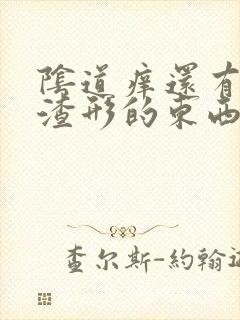 陰道癢還有
渣形的東西
查尔斯-約翰